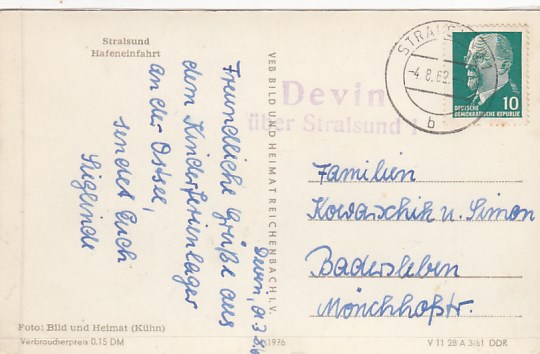 Stralsund
Hafeneinfahrt
Devin, d. 3.8.62
Freundliche Grüße aus
dem Kinderferienlager
an der Ostsee,
sendet Euch
Sieglinde
VEB BILD UND HEIMAT REICHENBACH I. V.
Devin
über Stralsund 1
STRALSUND
-4.8.62
b
10
DEUTSCHE
DEMOKRATISCHE REPUBLIK
Familien
Kowarschik u. Simon
Badersleben
Mönchhofstr.
Foto: Bild und Heimat (Kühn)
Verbraucherpreis 0,15 DM
1976
V 11 28 A 3/61 DDR